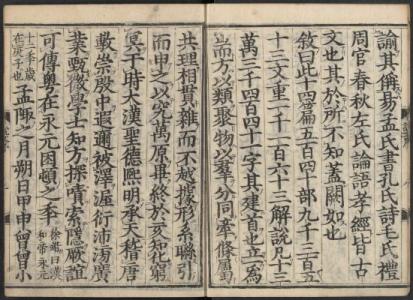 諭其偁易孟氏書孔氏詩毛氏禮
周官春秋左氏論語孝經皆古
文也其於所不知蓋闕如也
敘曰此十四篇五百四十部九千三百五
十三文重一千一百六十三解說凡十三
萬三千四百四十一字其建首也立一爲
耑方以類聚物以羣分同牽條屬
共理相貫雜而不越據形系聯引
而申之以究萬原畢終於亥知化窮
冥于時大漢聖德熙明承天稽唐
敷崇殷中遐邇被澤渥衍沛滂廣
業甄微學士知方探嘖索隱厥誼
可傳粵在永元困頓之季徐鍇曰漢和帝永元
十二季歲在庚子也孟陬之月朔日甲申曾曾小